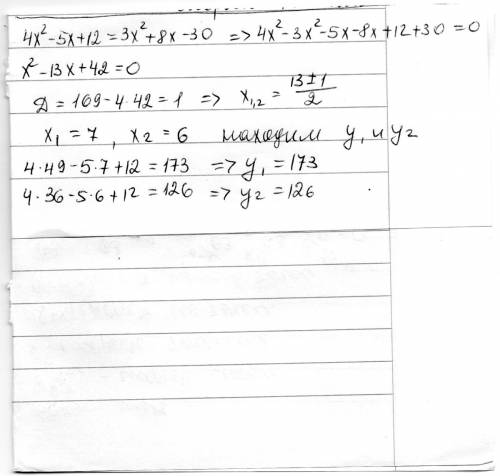 4x²-5x+12=3x²+8x-30 => 4x²-3x²-5x-8x+12+30=0
x²-13x+42=0
Д=169-4·42=1 => x₁,₂=(13±1)/2
x₁=7, x₂=6 находим y₁ и y₂
4·49-5·7+12=173 => y₁=173
4·36-5·6+12=126 => y₂=126